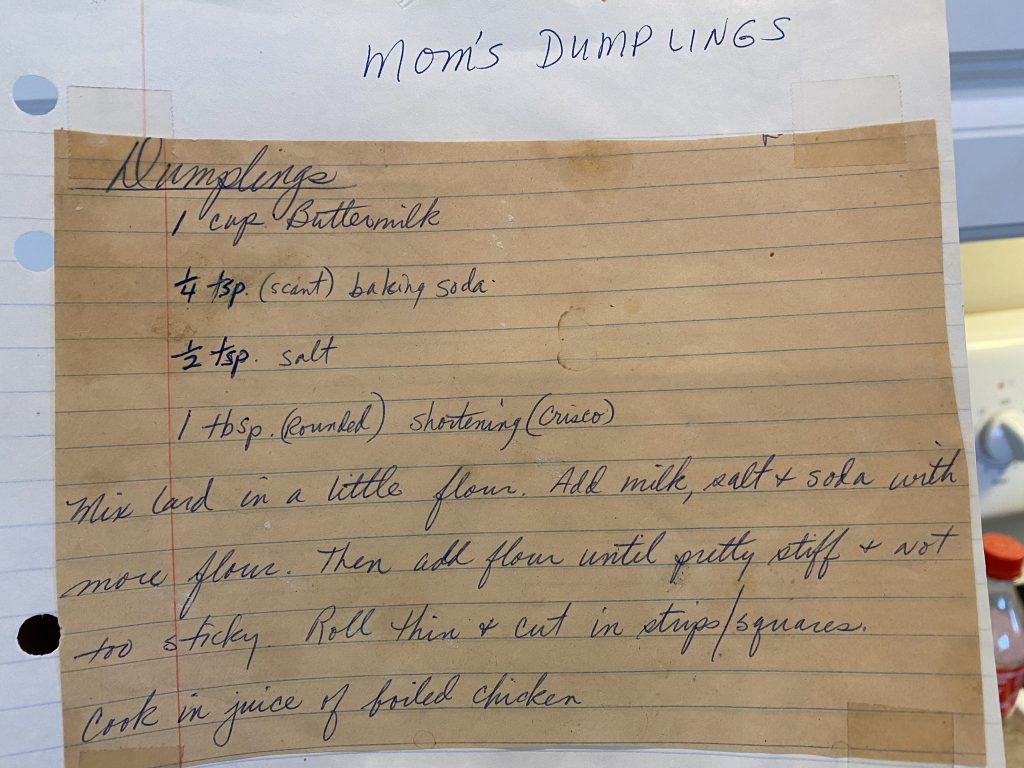 MOM'S DUMPLINGS
Dumplings
1 cup Buttermilk
1/4 tsp. (scant) baking soda.
1/2 tsp. salt
1 tbsp. (Rounded) shortening (Crisco)
Mix lard in a little flour. Add milk, salt & soda with
more flour. Then add flour until pretty stiff & not
too sticky. Roll thin & cut in strips/squares.
Cook in juice of boiled chicken